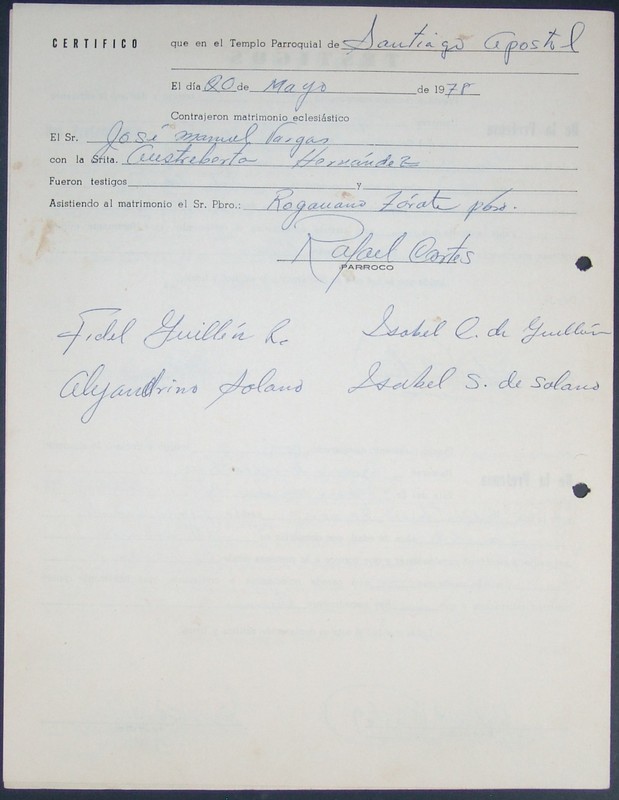 CERTIFICO que en el Templo Parroquial de Santiago Apostol
El día 20 de Mayo de 1978
Contrajeron matrimonio eclesiástico
El Sr. José Manuel Vargas
con la Srita. Austreberta Hernández
Fueron testigos y
Asistiendo al matrimonio el Sr. Pbro.: Zárate pbro.
Rafael Cortes
PARROCO
Fidel Guillén R. Isabel C. de Guillén
Alejandrino Solano Isabel S. de Solano